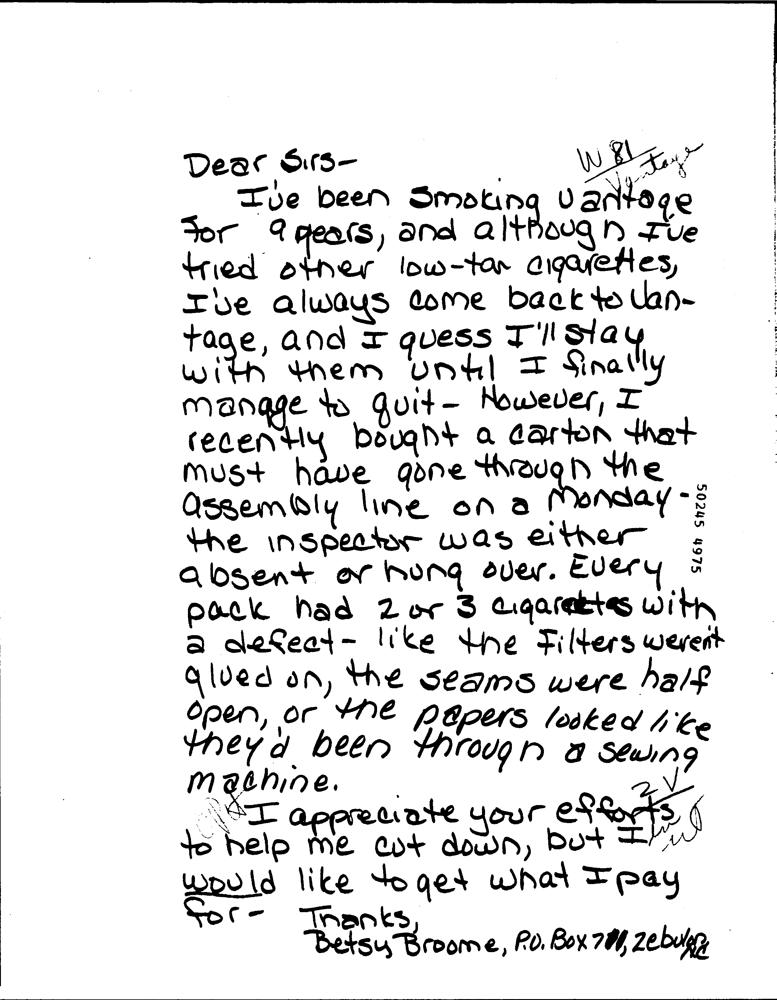 W 81
Vantage
Dear Sirs-
I've been smoking Vantage
for 9 years, and although I've
tried other low-tar cigarettes,
I've always come back to Van-
tage, and I guess I'll stay
with them until I finally
manage to quit- However, I
recently bought a carton that
must have gone through the
assembly line on a Monday-
the inspector was either
absent or hung over. Every
pack had 2 or 3 cigarettes with
a defect- like the filters weren't
glued on, the seams were half
open, or the papers looked like
they'd been through a sewing
machine.
2 V
I appreciate your efforts
to help me cut down, but I
would like to get what I pay
for- Thanks,
Betsy Broome, P.O. Box, Zebulon, NC
50245 4975